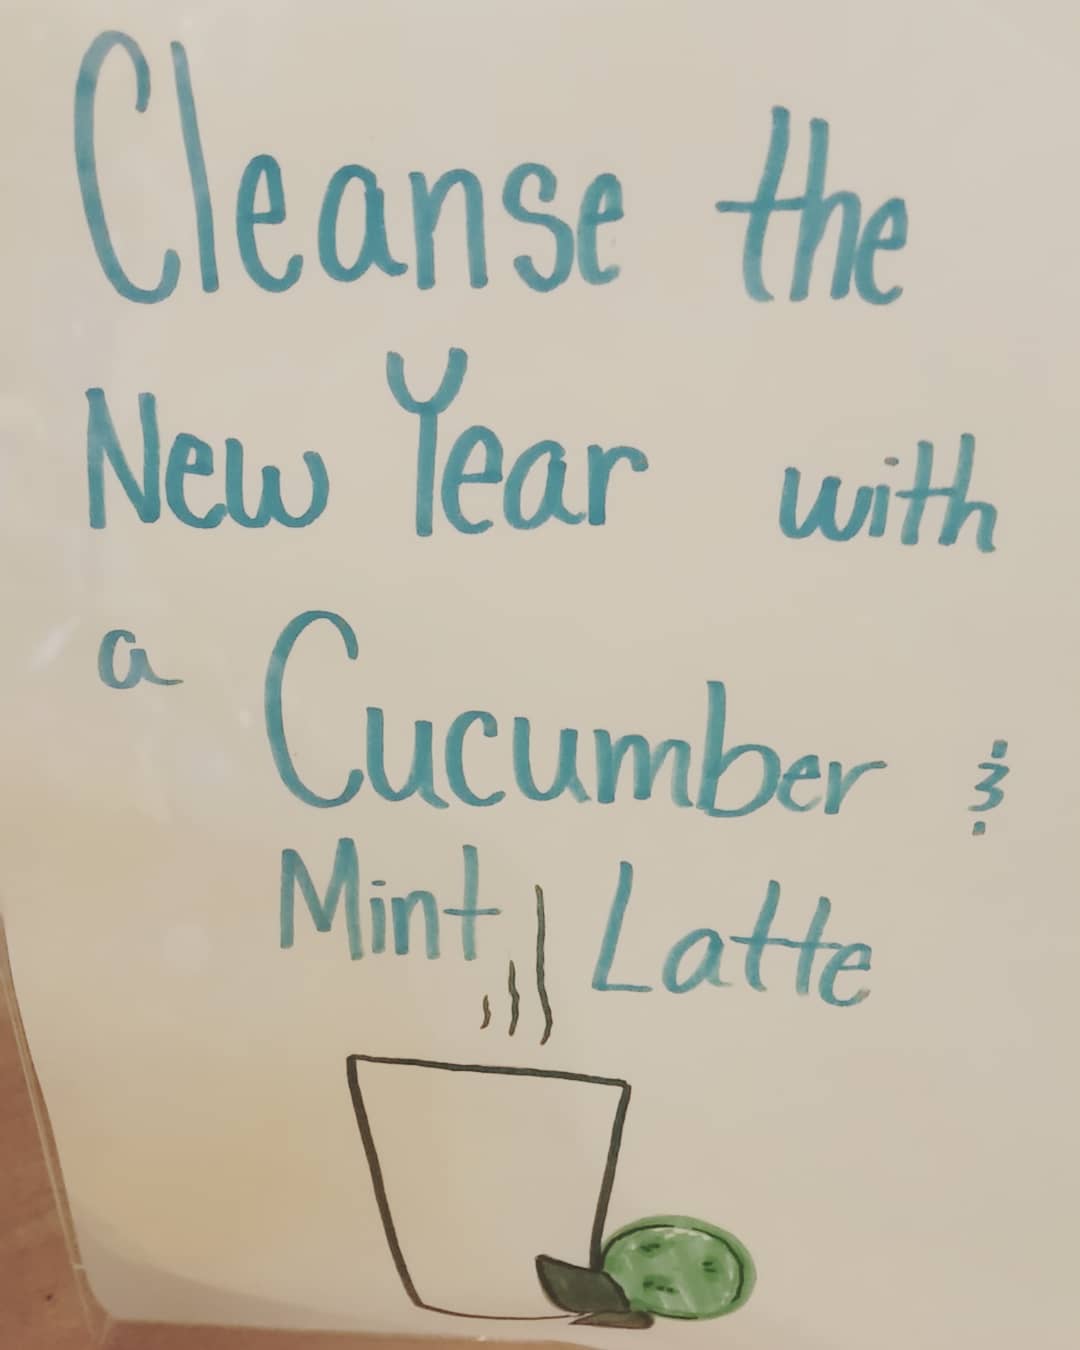 Cleanse the
New Year with
a Cucumber &
Mint Latte